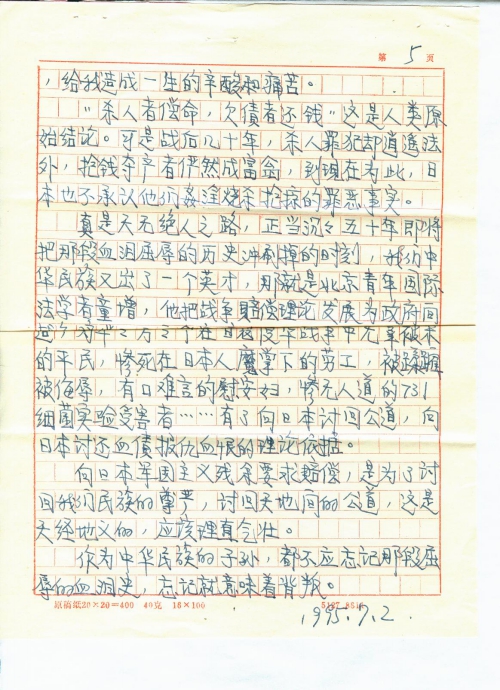 第 5 页
，给我造成一生的辛酸和痛苦。
“杀人者偿命，欠债者还钱”这是人类原
始结论。可是战后几十年，杀人罪犯却逍遥法
外，抢钱夺产者俨然成富翁，到现在为止，日
本也不承认他们奸淫烧杀抢掠的罪恶事实。
真是天无绝人之路，正当沉々五十年即将
把那段血泪屈辱的历史冲刷掉的时刻，我们中
华民族又出了一个英才，那就是北京青年国际
法学者童增，他把战争赔偿理论发展为政府间
在日本侵华战争中无辜被杀
的平民，惨死在日本人魔掌下的劳工，被蹂躏
被侮辱，有口难言的慰安妇，惨无人道的731
细菌实验受害者……有了向日本讨回公道，向
日本讨还血债报仇血恨的理论依据。
向日本军国主义残余要求赔偿，是为了讨
回我们民族的尊严，讨回天地间的公道，这是
天经地义的，应该理直气壮。
作为中华民族的子孙，都不应忘记那段屈
辱的血泪史，忘记就意味着背叛。
原稿纸20×20=400 40克 16×100
1995.7.2